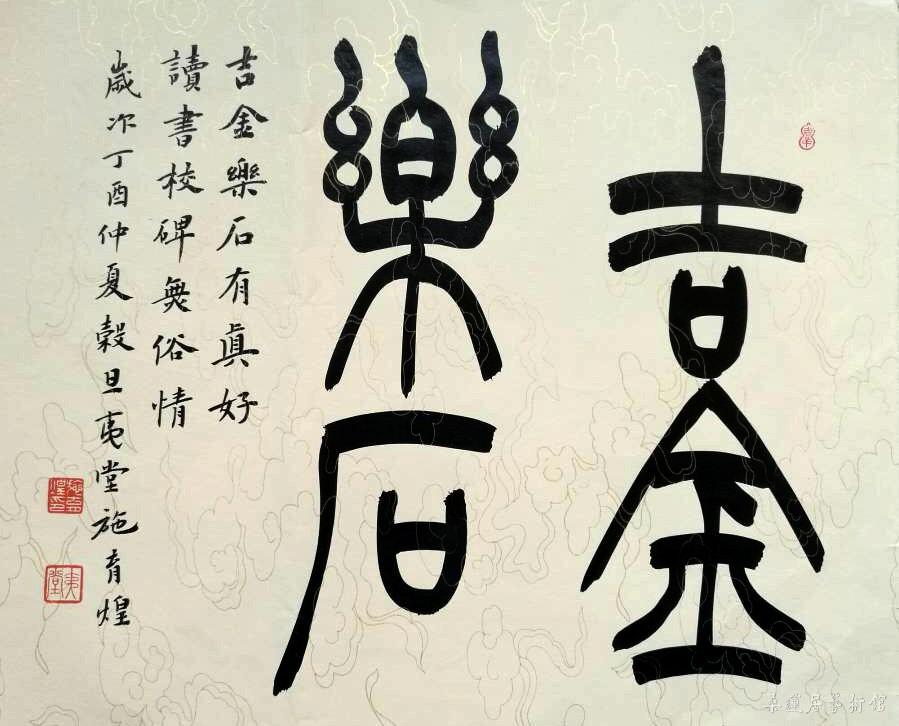 吉金
樂石
吉金樂石有真好
讀書校碑無俗情
歲次丁酉仲夏穀旦夷堂施育煌
施育煌印
夷堂